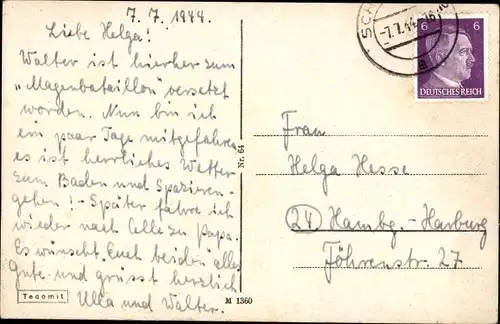 7. 7. 1944.
Liebe Helga!
Walter ist hierher zum
„Magenbataillon" versetzt
worden. Nun bin ich
ein paar Tage mitgefahren,
es ist herrliches Wetter
zum Baden und Spazieren-
gehen! - Später fahre ich
wieder nach Celle zu Papa.
Es wünscht Euch beiden alles
Gute und grüsst herzlich
Ulla und Walter.
Tecomit
Nr. 64
M 1360
SCH
-7.7.44-16
a
6 6
DEUTSCHES REICH
Frau
Helga Hesse
24 Hambg.-Harburg
Föhrenstr. 27